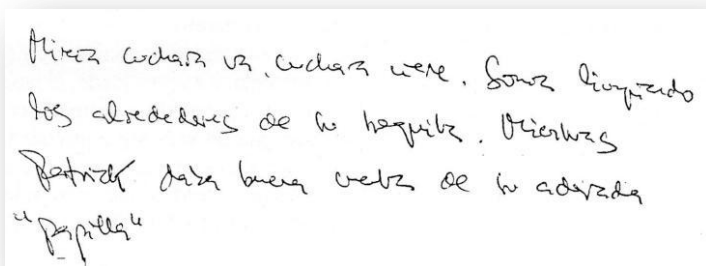 Mireia cuchara va, cuchara viene. Sonia limpiando
los alrededores de la boquita. Mientras
Patrick daba buena cuenta de la adorada
"papilla"